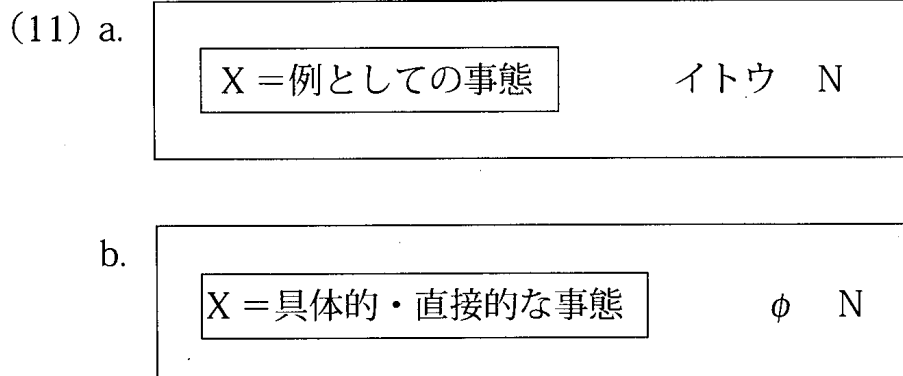 (11) a.
X=例としての事態 イトウ N
b.
X=具体的・直接的な事態 φ N